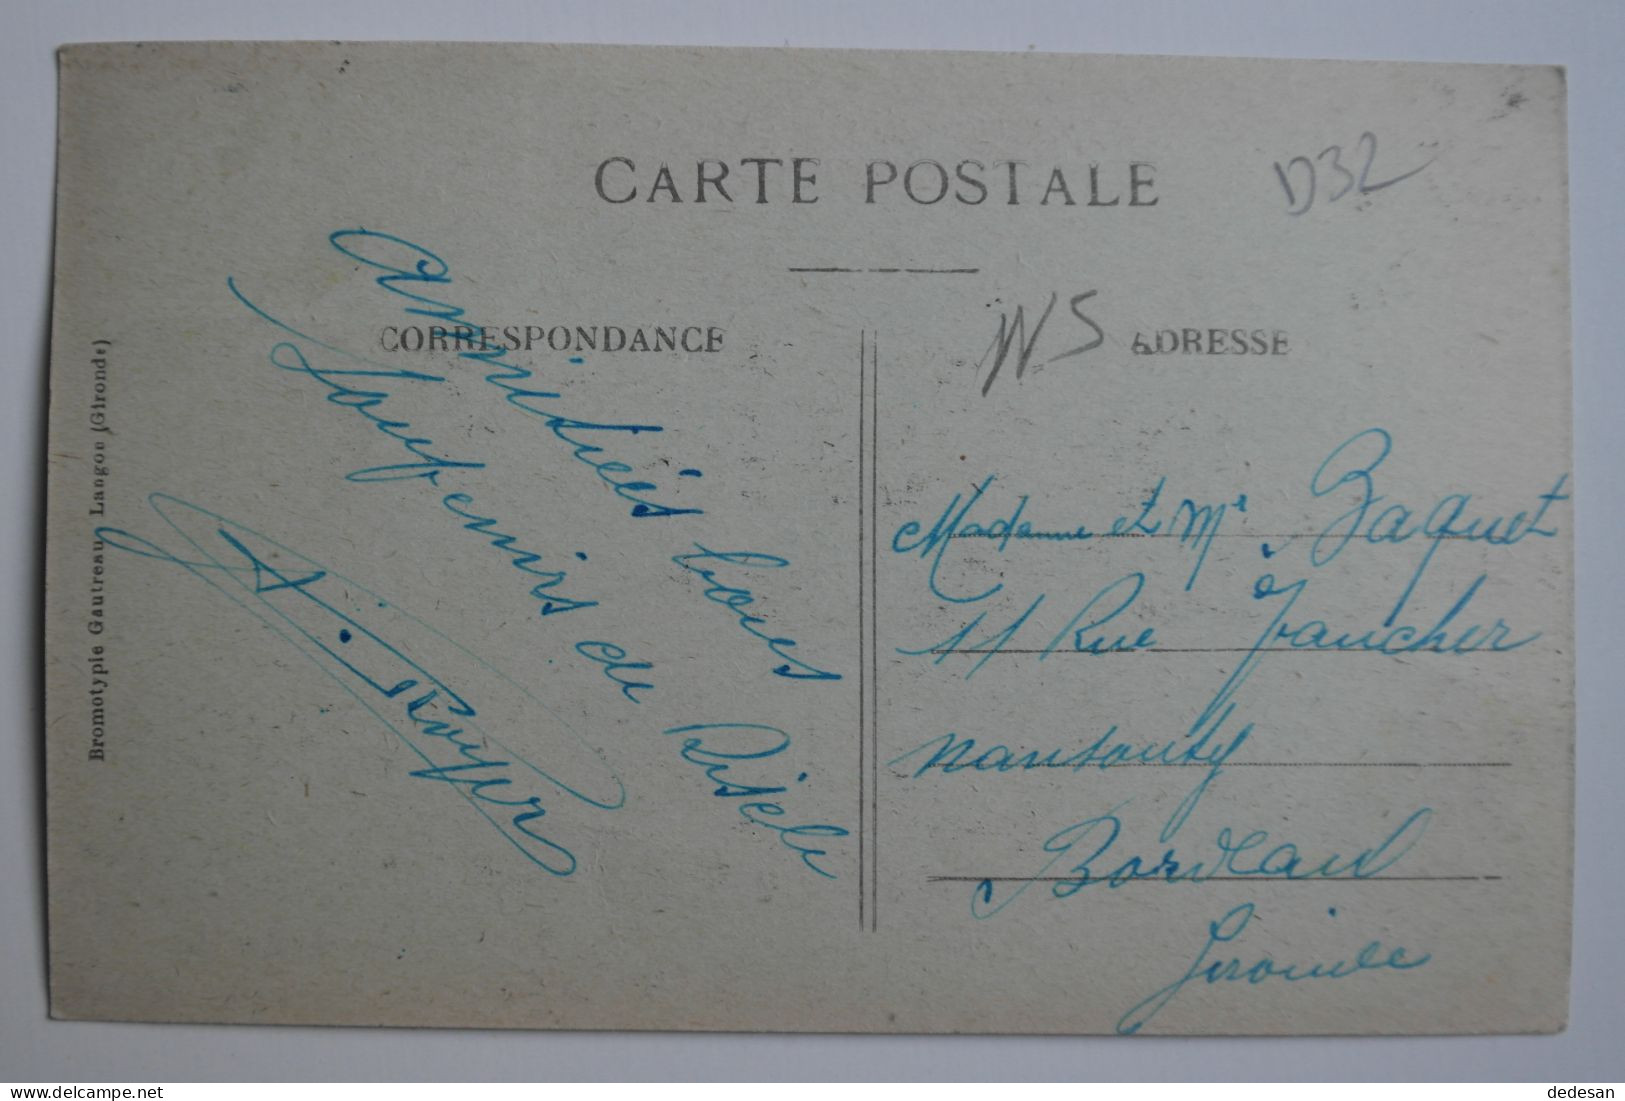 CARTE POSTALE
D32
CORRESPONDANCE
NS
ADRESSE
Amitiés bons
Souvenirs de
Gisèle
A. Royer
Madame et Mr Baquet
11 Rue Faucher
Nansouty
Bordeaux
Gironde
Bromotypie Gautreau, Langon (Gironde)
dedesan